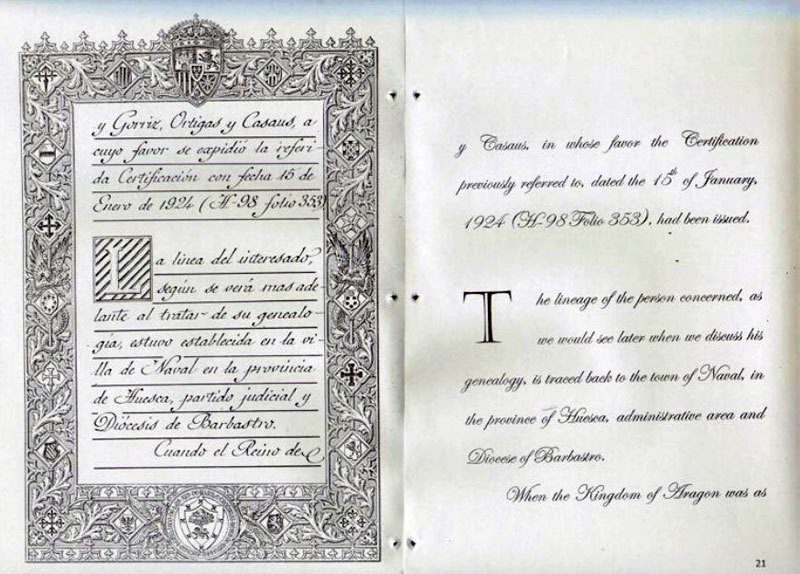 y Gorriz, Ortigas y Casaus, a
cuyo favor se expidió la referi-
da Certificación con fecha 15 de
Enero de 1924 (H-98 folio 353)
La linea del interesado,
según se verá mas ade-
lante al tratar de su genealo-
gia, estuvo establecida en la vi-
lla de Naval en la provincia
de Huesca, partido judicial y
Diócesis de Barbastro.
Cuando el Reino de
y Casaus, in whose favor the Certification
previously referred to, dated the 15th of January,
1924 (H-98 Folio 353), had been issued.
The lineage of the person concerned, as
we would see later when we discuss his
genealogy, is traced back to the town of Naval, in
the province of Huesca, administrative area and
Diocese of Barbastro.
When the Kingdom of Aragon was as
21